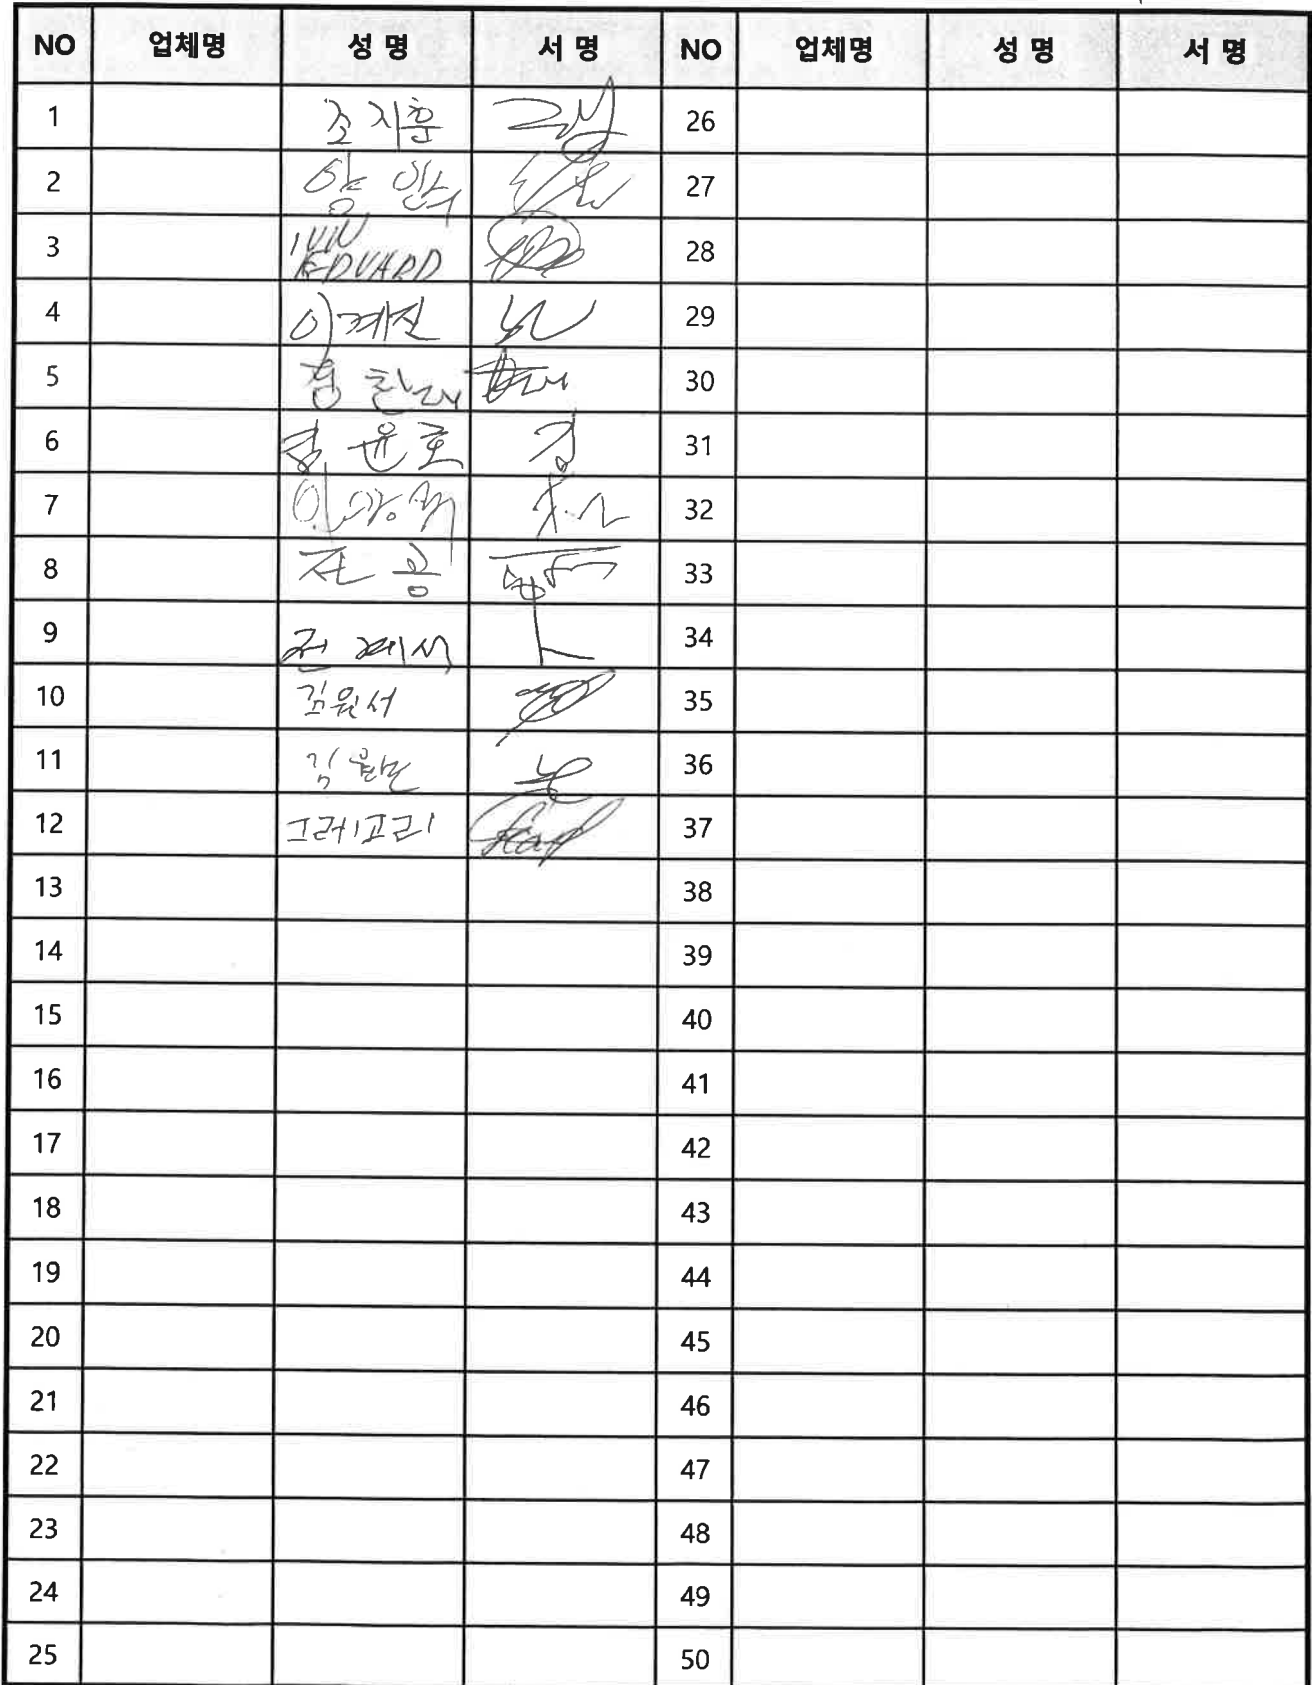 NO 업체명 성 명 서 명 NO 업체명 성 명 서 명
1 조지훈 26
2 27
3 EDVARD 28
4 이계진 29
5 30
6 윤호 31
7 32
8 전 용 33
9 전 계석 34
10 김원서 35
11 김 36
12 그레고리 37
13 38
14 39
15 40
16 41
17 42
18 43
19 44
20 45
21 46
22 47
23 48
24 49
25 50